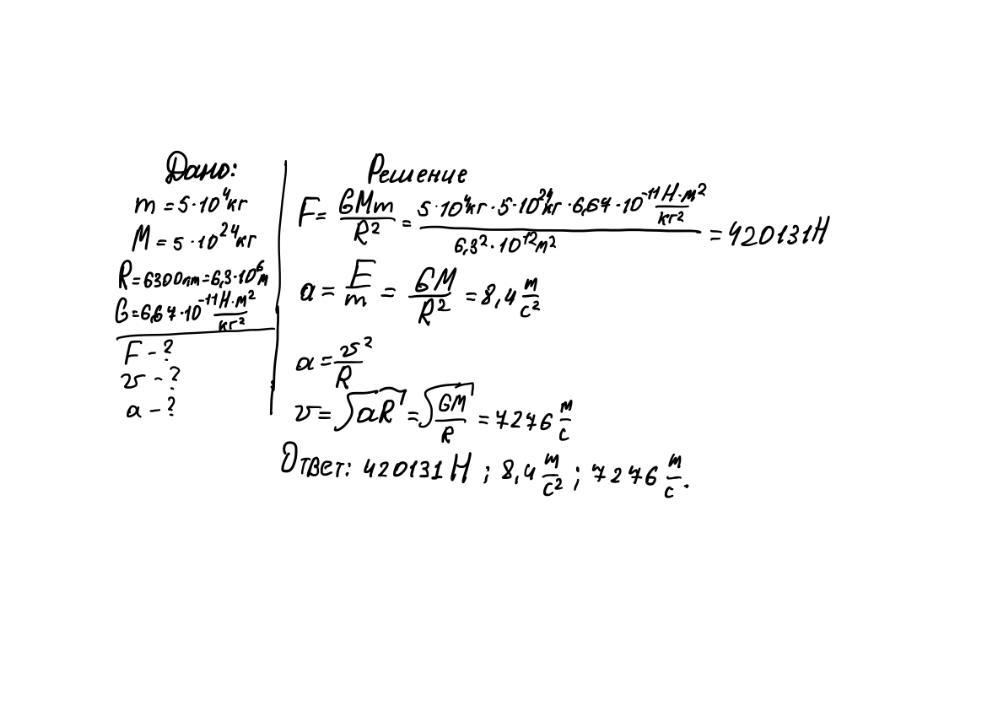 Дано:
m = 5·10⁴кг
M = 5·10²⁴кг
R = 6300km = 6,3·10⁶м
G = 6,67·10⁻¹¹ Н·м²/кг²
F - ?
v - ?
a - ?
Решение
F = GMm/R² = 5·10⁴кг·5·10²⁴кг·6,67·10⁻¹¹ Н·м²/кг² / 6,3²·10¹²м² = 420131Н
a = F/m = GM/R² = 8,4 м/с²
a = v²/R
v = √aR = √GM/R = 7276 м/с
Ответ: 420131Н ; 8,4 м/с² ; 7276 м/с.